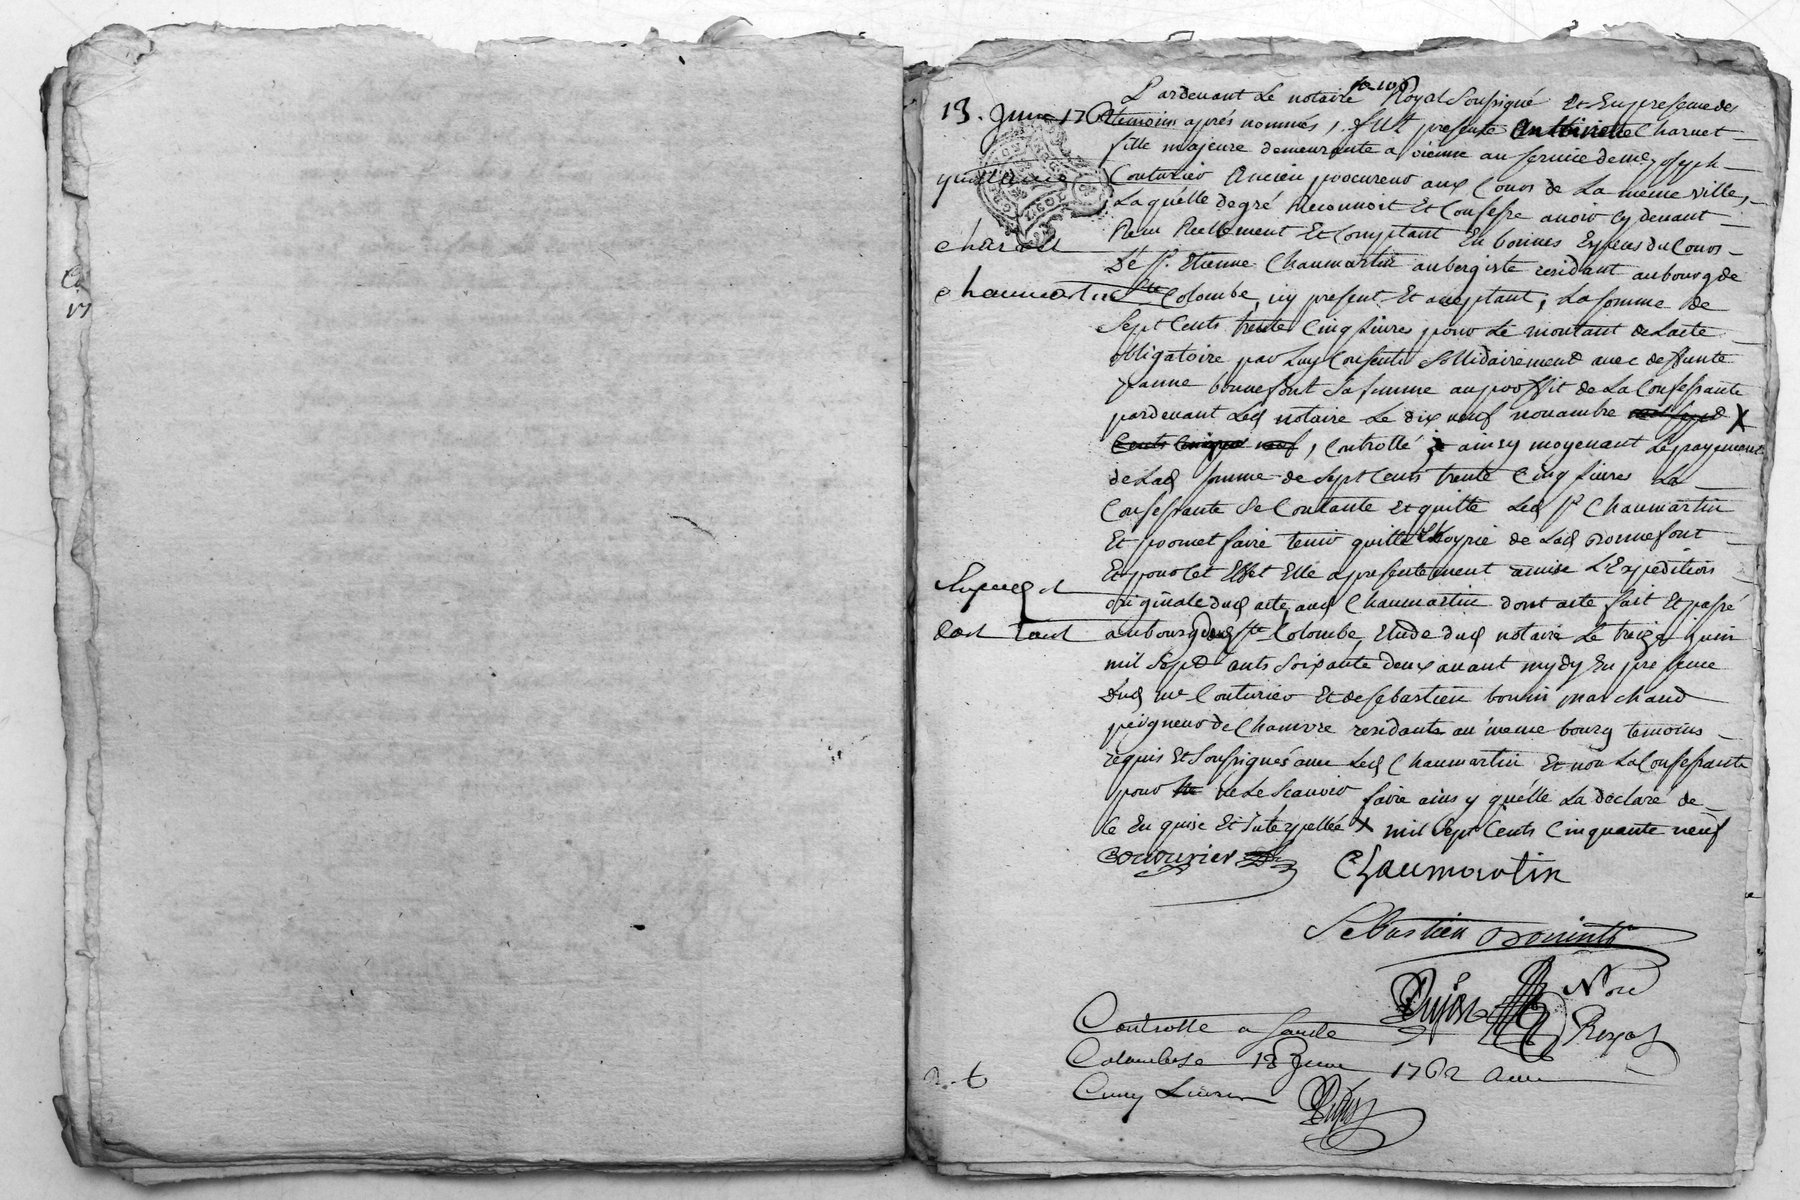 Co
17
Pardevant Le notaire Royal Soussigné Et En presence des
13. Juin 176
temoins aprés nommés, fut presente Charvet
fille majeure demeurante a vienne au service de me joseph
quittance
Couturier Ancien procureur aux Cours de La meme ville,
Laquelle de gré Reconnoit Et Confesse avoir cy devant
Charvet
Receu Reellement Et Comptant En bonnes Especes du Cours
De Sr. Etienne Chaumartin aubergiste residant au bourg de
chaumartin
Ste Colombe, icy present Et aceptant, La somme de
Sept Cents trente Cinq Livres pour Le montant de Lacte
obligatoire par Luy Consenti Sollidairement avec deffunte
janne bonnefont Sa femme au proffit de La Confessante
pardevant Led notaire Le dix neuf novambre X
, Controllé, ainsy moyenant Le payement
de Lad somme de Sept Cents trente Cinq Livres La
Confessante Se Contante Et quitte Led Sr Chaumartin
Et promet faire tenir quitte L'hoyrie de Lad Bonnefont
Et pour Cet Effet Elle a presentement remise L'Expedition
Expedié
originale dud acte aud Chaumartin dont acte fait Et passé
au bourg dud Ste Colombe, Etude dud notaire Le treize juin
mil Sept Cents Soixante deux avant mydy En presence
dud me Couturier Et de Sebastien bonnin marchand
peigneur de Chanvre residants au meme bourg temoins
requis Et Soussignés avec Led Chaumartin Et non La Confessante
pour ne Le Scavoir faire ainsy quélle La declaré de
Ce En quise Et Interpellée X mil Sept Cents Cinquante neuf
Couturier
Chaumartin
Sebastien Bonnin
Nore
Royal
Controlle a Sainte
Colombe 13 Juin 1762